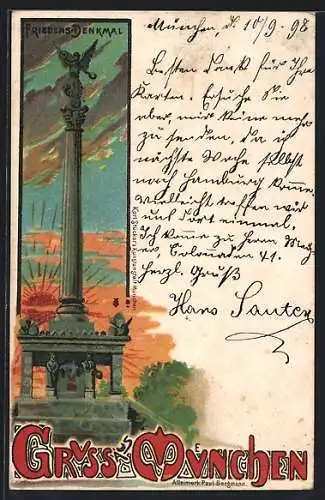 FRIEDENS-DENKMAL
München, d. 10/9. 98
Besten Dank für Ihre
Karten. Ersuche Sie
aber, mir keine mehr
zu senden, da ich
nächste Woche selbst
nach Hamburg komme.
Vielleicht treffen wir
uns dort einmal.
Ich komme zu Herrn
Colonnaden 41.
Herzl. Gruß
Hans Santer
GRUSS AUS MÜNCHEN